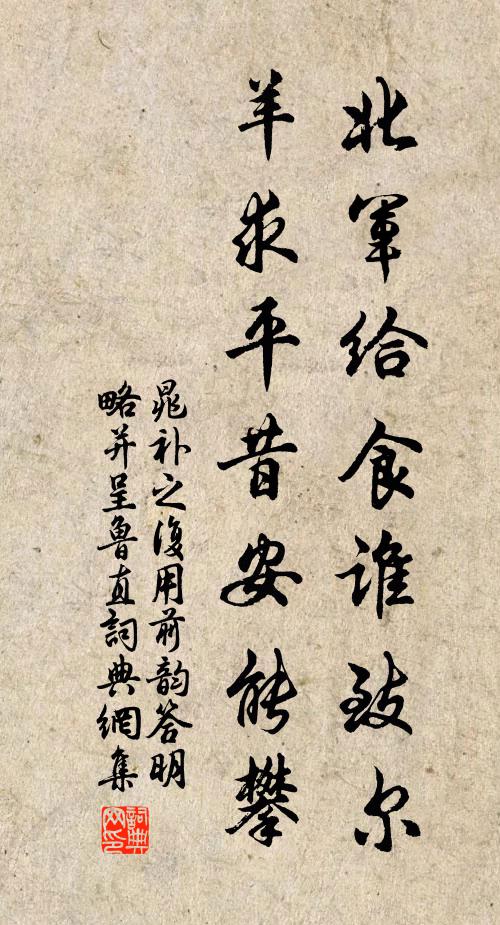 北军给食谁致尔
羊求平昔安能攀
晁补之復用前韵答明
略并呈鲁直詞典網集
詞典
网印